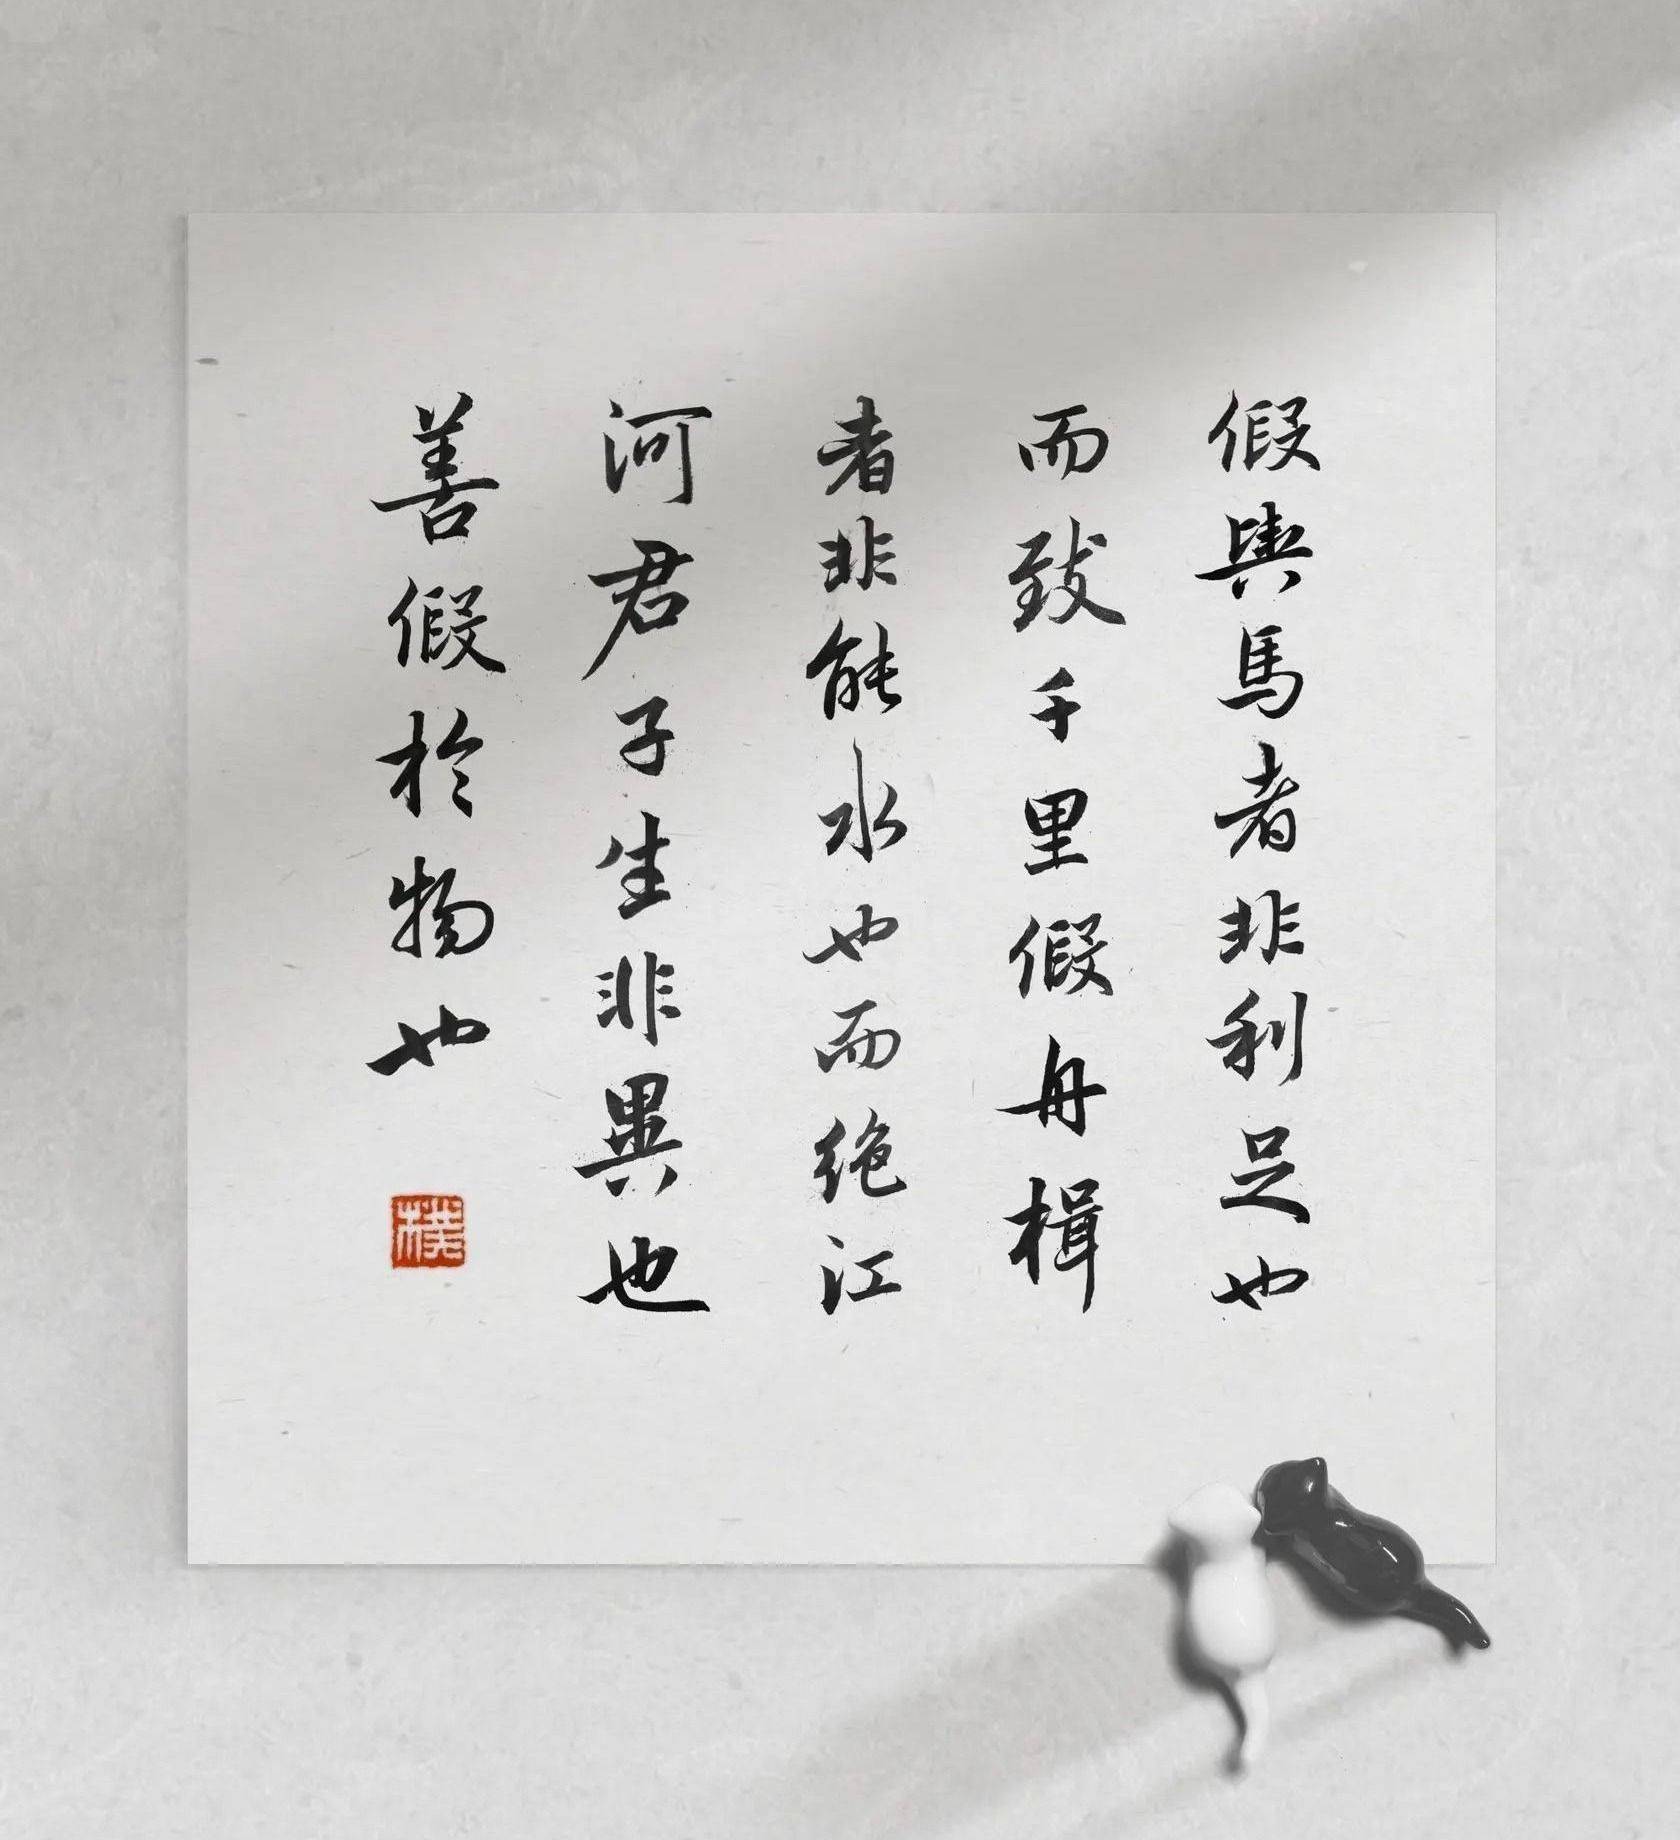 假輿馬者非利足也
而致千里假舟楫
者非能水也而绝江
河君子生非異也
善假於物也
樸